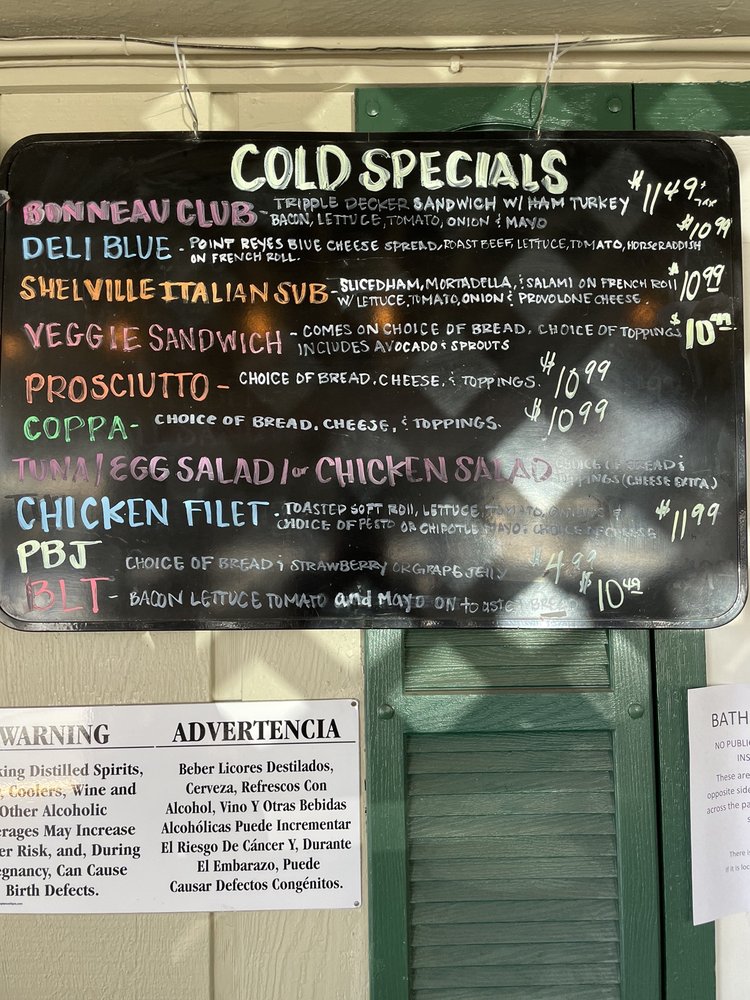 COLD SPECIALS
BONNEAU CLUB - TRIPPLE DECKER SANDWICH W/ HAM TURKEY $11.49 + TAX
BACON, LETTUCE, TOMATO, ONION & MAYO
DELI BLUE - POINT REYES BLUE CHEESE SPREAD, ROAST BEEF, LETTUCE, TOMATO, HORSERADDISH $10.99
ON FRENCH ROLL.
SHELVILLE ITALIAN SUB - SLICED HAM, MORTADELLA, & SALAMI ON FRENCH ROLL $10.99
W/ LETTUCE, TOMATO, ONION & PROVOLONE CHEESE.
VEGGIE SANDWICH - COMES ON CHOICE OF BREAD, CHOICE OF TOPPINGS $10.49
INCLUDES AVOCADO & SPROUTS
PROSCIUTTO - CHOICE OF BREAD, CHEESE, & TOPPINGS. $10.99
COPPA - CHOICE OF BREAD, CHEESE, & TOPPINGS. $10.99
TUNA/EGG SALAD/or CHICKEN SALAD CHOICE OF BREAD &
TOPPINGS (CHEESE EXTRA)
CHICKEN FILET - TOASTED SOFT ROLL, LETTUCE, TOMATO, ONIONS & $11.99
CHOICE OF PESTO OR CHIPOTLE MAYO & CHOICE OF CHEESE
PBJ CHOICE OF BREAD & STRAWBERRY OR GRAPE JELLY $4.99
BLT - BACON LETTUCE TOMATO and MAYO ON toasted BREAD $10.49
WARNING
king Distilled Spirits,
Coolers, Wine and
Other Alcoholic
erages May Increase
er Risk, and, During
egnancy, Can Cause
Birth Defects.
ADVERTENCIA
Beber Licores Destilados,
Cerveza, Refrescos Con
Alcohol, Vino Y Otras Bebidas
Alcohólicas Puede Incrementar
El Riesgo De Cáncer Y, Durante
El Embarazo, Puede
Causar Defectos Congénitos.
BATH
NO PUBLI
INS
These are
opposite side
across the pa
s
There is
if it is loc